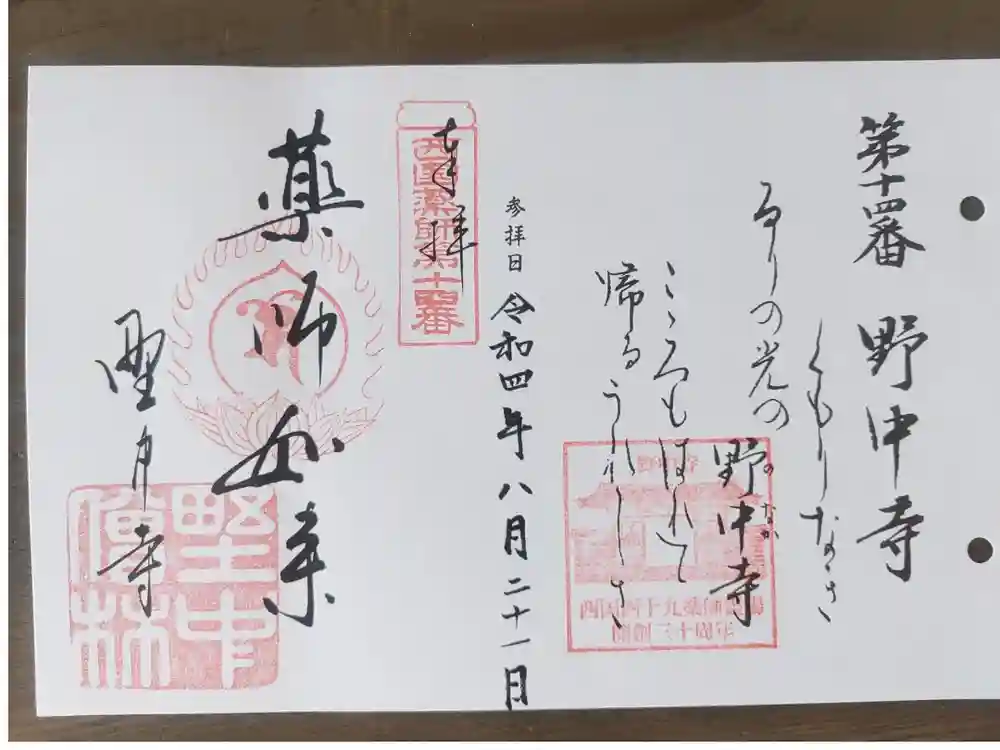 第十四番 野中寺
くもりなき
るりの光の
野中寺
のなか
こゝろもはれて
帰るうれしさ
西国四十九薬師霊場
開創三十周年
参拝日 令和四年八月二十一日
奉拝
西国薬師第十四番
薬師如来
野中寺
野中
僧林